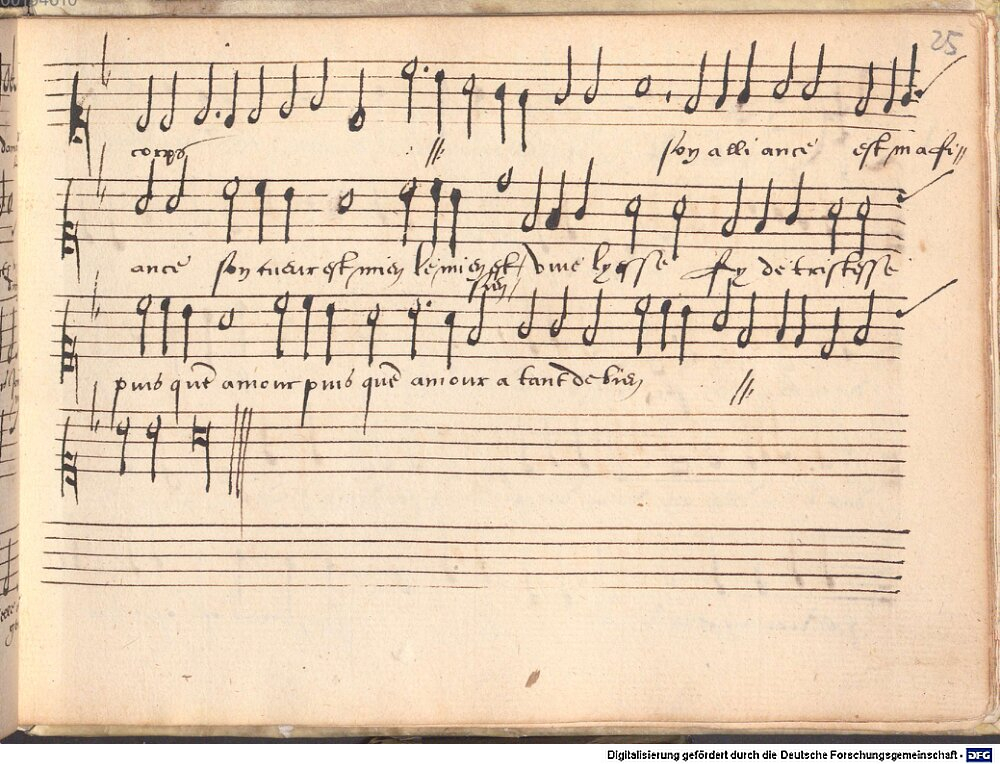 25
corps son alliance est ma fi
ance son cueur est mien le mien est lyesse fy de tristesse
sien
puis que amour puis que amour a tant de bien
Digitalisierung gefördert durch die Deutsche Forschungsgemeinschaft - DFG